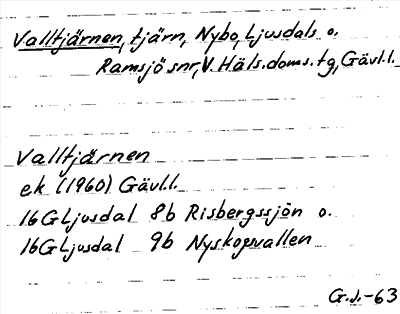 Valltjärnen, tjärn, Nybo, Ljusdals o.
Ramsjö snr, V. Häls. doms. tg, Gävl.l.
Valltjärnen
ek (1960) Gävl.l.
16G Ljusdal 8b Risbergssjön o.
16G Ljusdal 9b Nyskogsvallen
G.J.-63